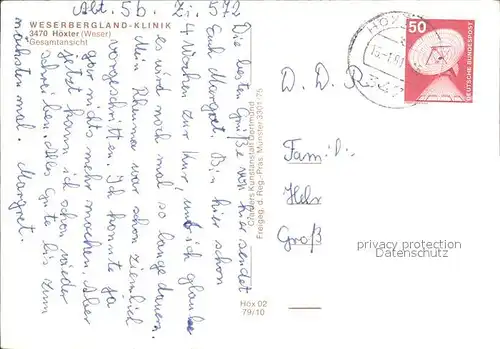 Alt. 5b. Zi. 572
WESERBERGLAND-KLINIK
3470 Höxter (Weser)
Gesamtansicht
Die besten Grüße von hier sendet
Euch Margret. Bin hier schon
4 Wochen zur Kur, und ich glaube
es wird noch mal so lange dauern.
Mein Rheuma war schon ziemlich
vorgeschritten. Ich konnte ja
gar nichts mehr machen. Aber
jetzt kann ich schon wieder
schreiben. Alles Gute bis zum
nächsten mal. Margret.
Cramers Kunstanstalt Dortmund
Freigeg. d. Reg.-Präs. Münster 3301/75
Höx 02
79/10
HÖXTER
50
DEUTSCHE BUNDESPOST
D. D. R.
Famili.
Groß
privacy protection
Datenschutz